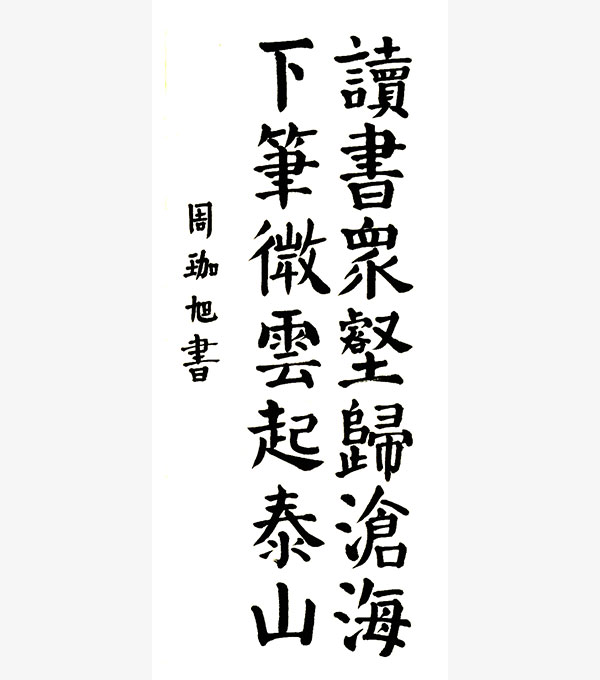 讀書衆壑歸滄海
下筆微雲起泰山
周珈旭書